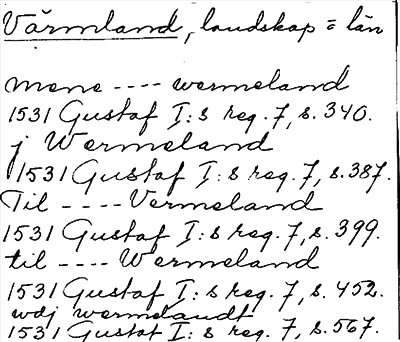 Värmland, landskap = län
mene ---- wermeland
1531 Gustaf I:s reg. 7, s. 340.
j Wermeland
1531 Gustaf I:s reg. 7, s. 387.
Til ---- Vermeland
1531 Gustaf I:s reg. 7, s. 399.
til ---- Wermeland
1531 Gustaf I:s reg. 7, s. 452.
wdj wermelandt
1531 Gustaf I:s reg. 7, s. 567.